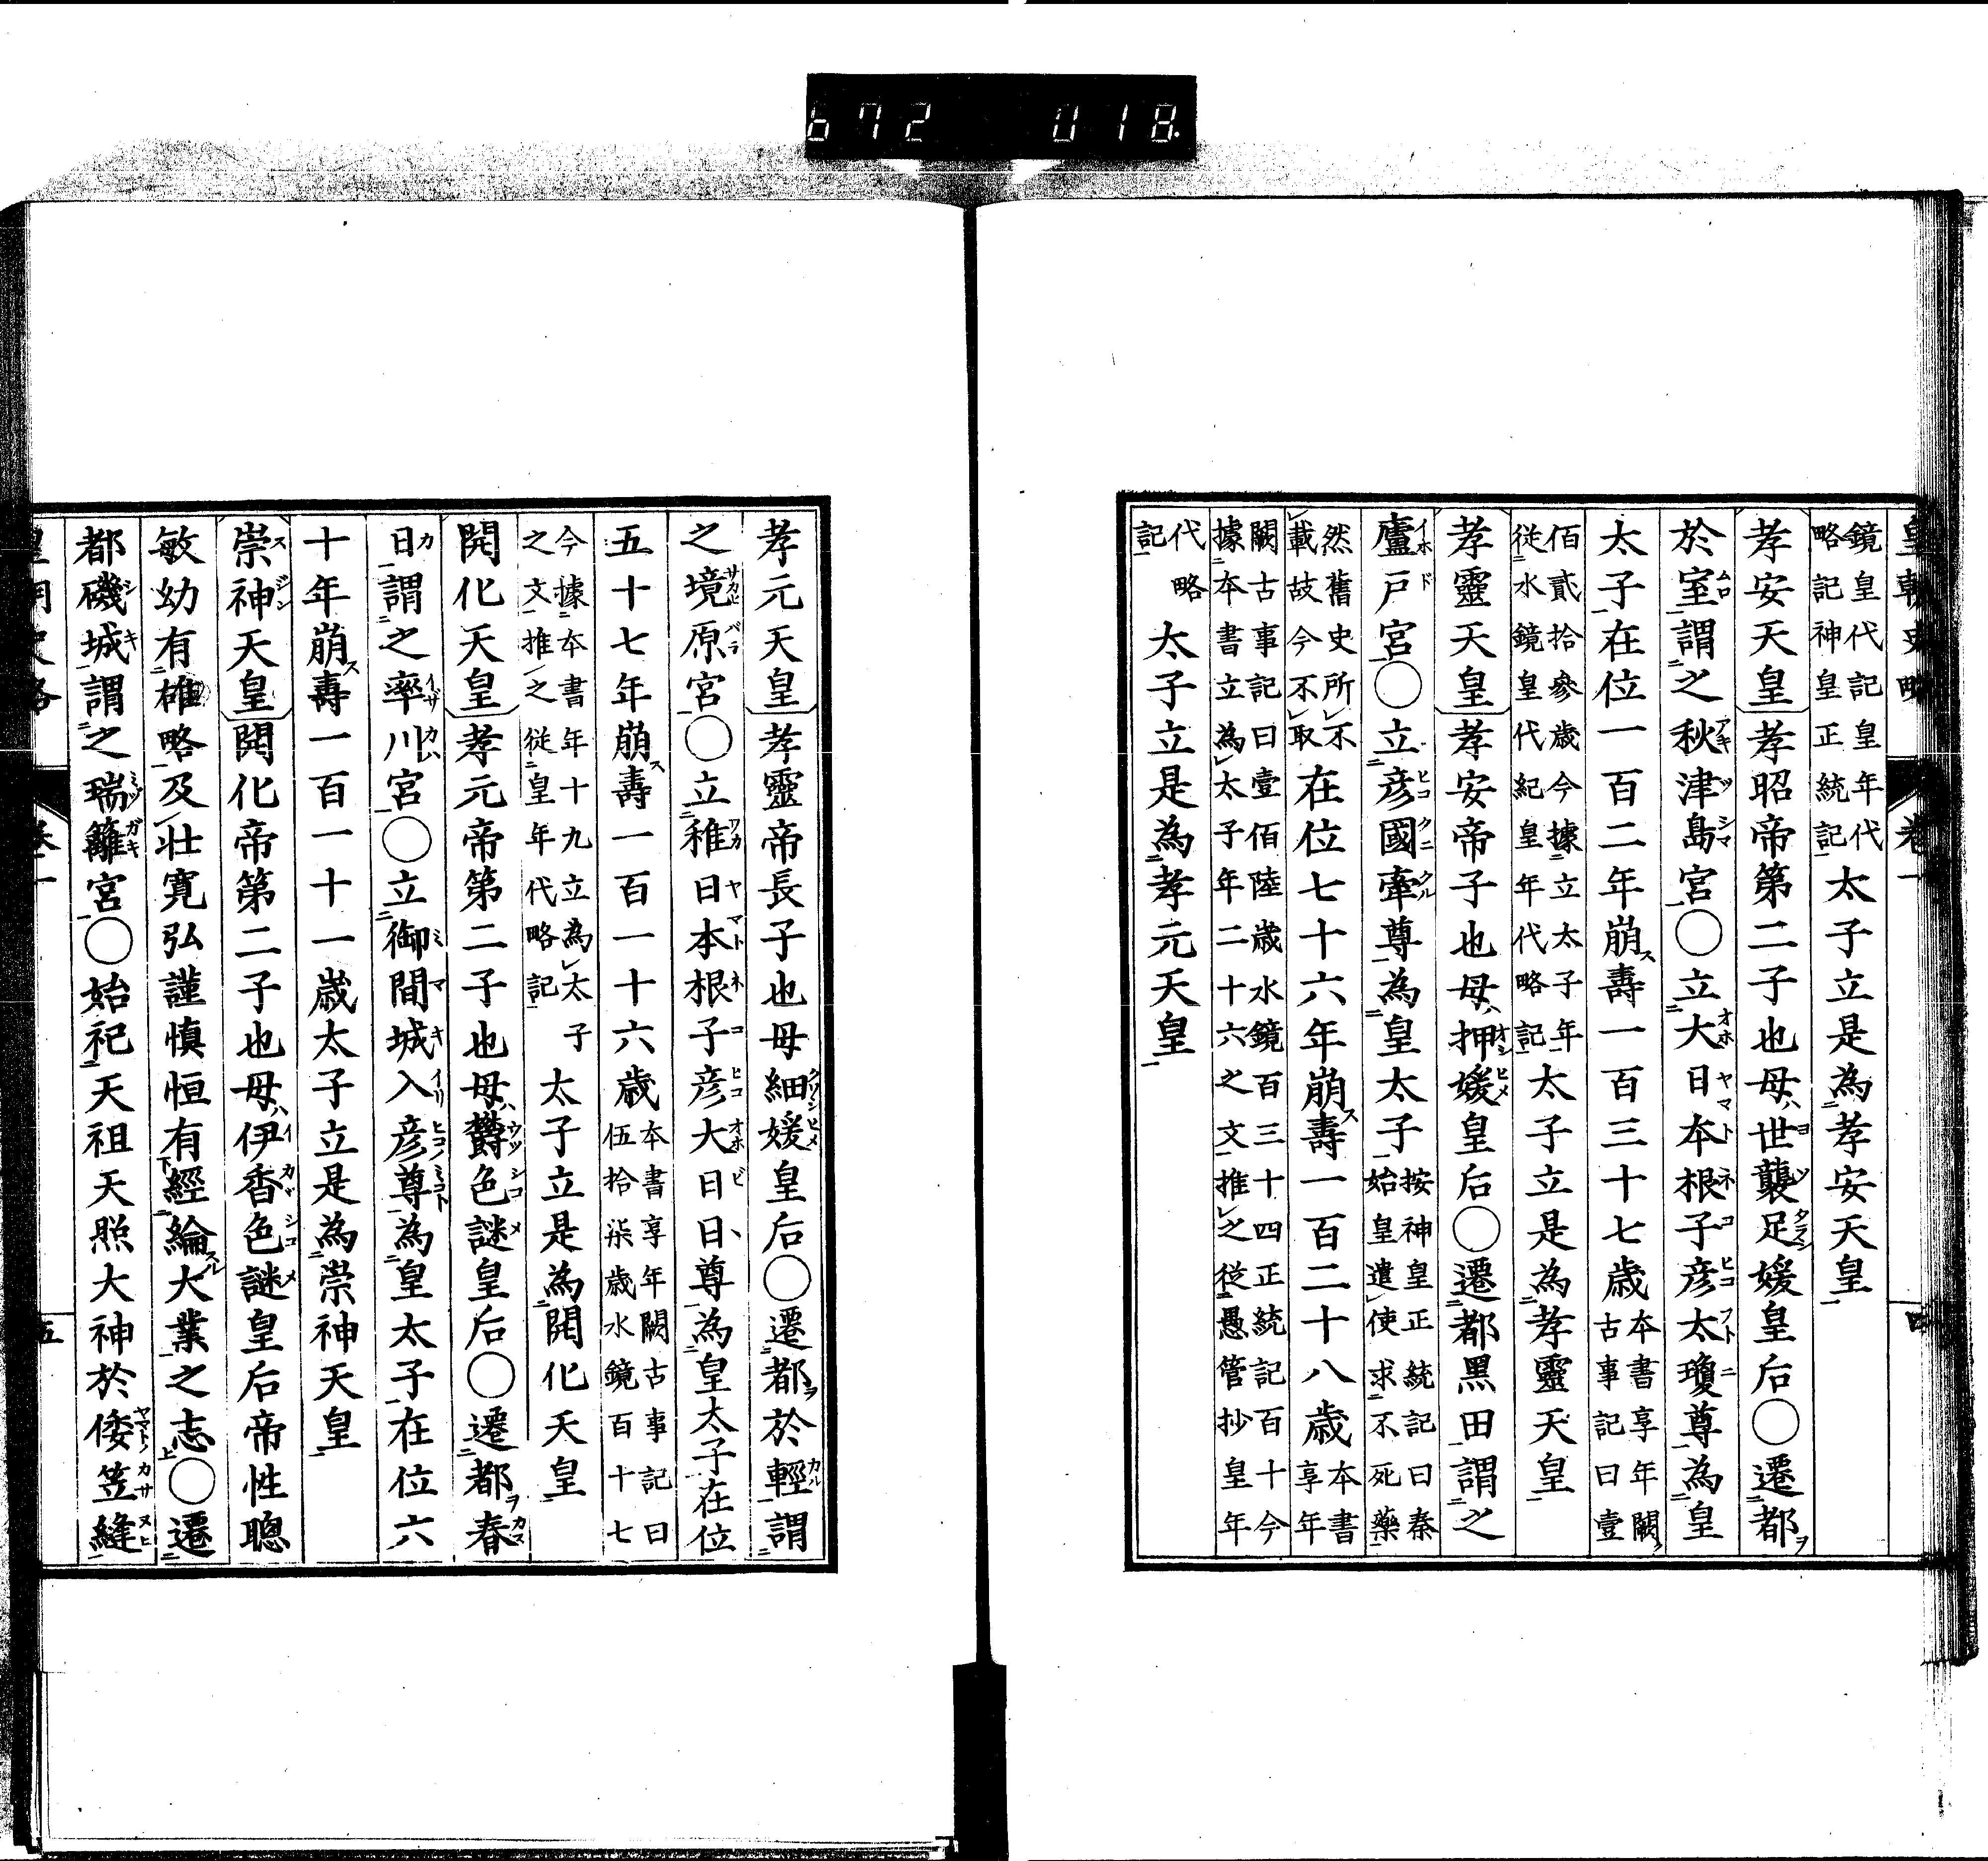 672 018
皇朝史略 卷一 四
鏡皇代記皇年代
略記神皇正統記 太子立是為孝安天皇
孝安天皇 孝昭帝第二子也母世襲足媛皇后○遷都
於室謂之秋津島宮○立大日本根子彥太瓊尊為皇
太子在位一百二年崩壽一百三十七歲 本書享年闕
古事記曰壹
佰貳拾參歲今據立太子年
從水鏡皇代紀皇年代略記 太子立是為孝靈天皇
孝靈天皇 孝安帝子也母押媛皇后○遷都黑田謂之
廬戶宮○立彥國牽尊為皇太子 按神皇正統記曰秦
始皇遣使求不死藥
然舊史所不
載故今不取 在位七十六年崩壽一百二十八歲 本書
享年
闕古事記曰壹佰陸歲水鏡百三十四正統記百十今
據本書立為太子年二十六之文推之從愚管抄皇年
代略
記 太子立是為孝元天皇
孝元天皇 孝靈帝長子也母細媛皇后○遷都於輕謂
之境原宮○立稚日本根子彥大日日尊為皇太子在位
五十七年崩壽一百一十六歲 本書享年闕古事記曰
伍拾柒歲水鏡百十七
今據本書年十九立為太子
之文推之從皇年代略記 太子立是為開化天皇
開化天皇 孝元帝第二子也母欝色謎皇后○遷都春
日謂之率川宮○立御間城入彥尊為皇太子在位六
十年崩壽一百一十一歲太子立是為崇神天皇
崇神天皇 開化帝第二子也母伊香色謎皇后帝性聰
敏幼有雄略及壯寬弘謹慎恒有經綸大業之志○遷
都磯城謂之瑞籬宮○始祀天祖天照大神於倭笠縫
五